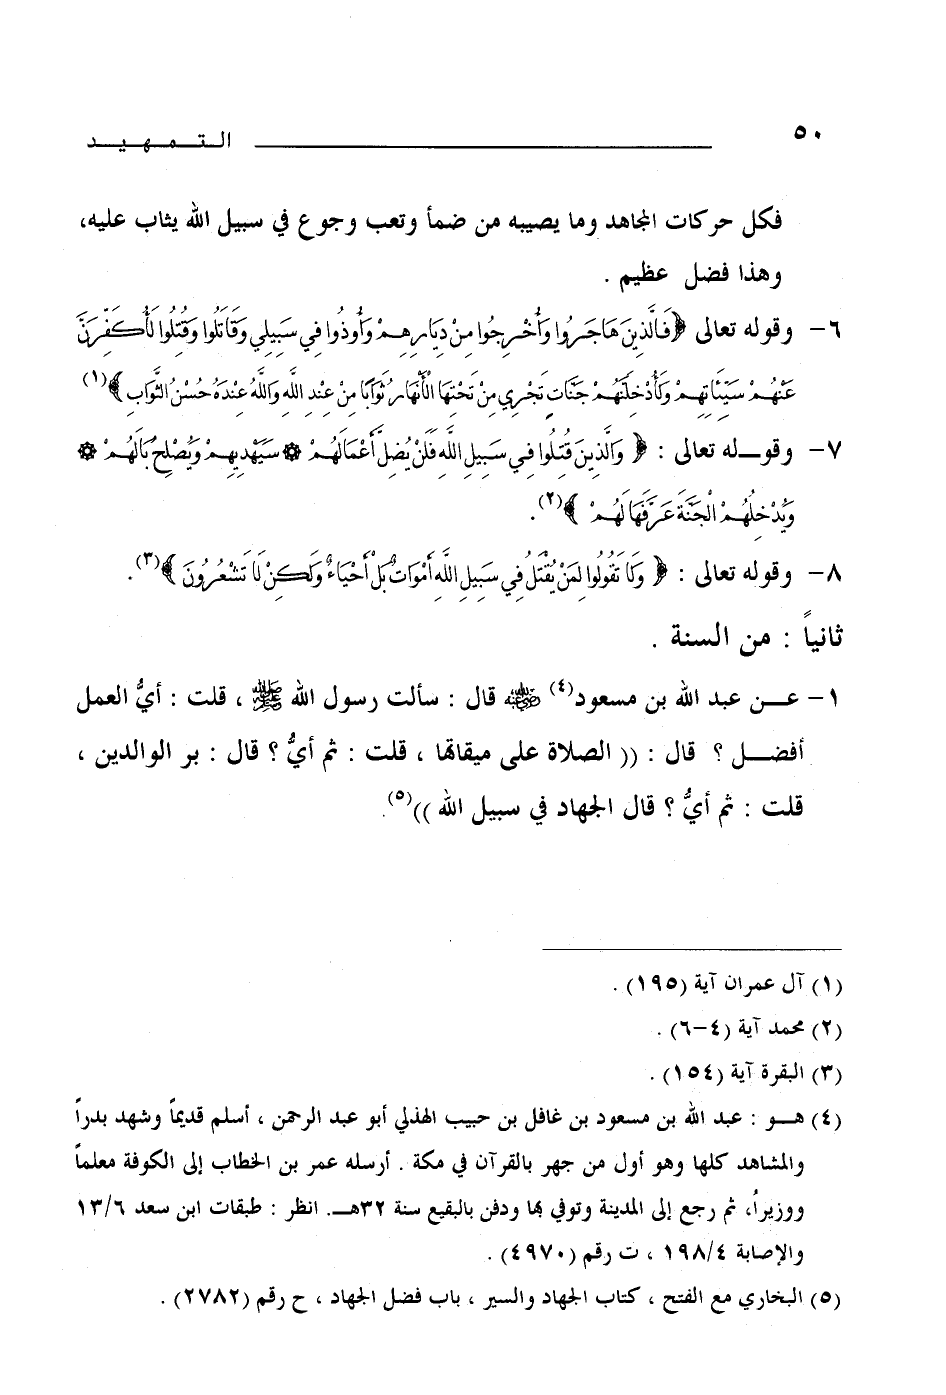 ٥٠
التـمـهـيـد
فكل حركات المجاهد وما يصيبه من ضمأ وتعب وجوع في سبيل الله يثاب عليه،
وهذا فضل عظيم .
٦- وقوله تعالى ﴿فَالَّذِينَ هَاجَرُوا وَأُخْرِجُوا مِنْ دِيَارِهِمْ وَأُوذُوا فِي سَبِيلِي وَقَاتَلُوا وَقُتِلُوا لَأُكَفِّرَنَّ
عَنْهُمْ سَيِّئَاتِهِمْ وَلَأُدْخِلَنَّهُمْ جَنَّاتٍ تَجْرِي مِنْ تَحْتِهَا الْأَنْهَارُ ثَوَابًا مِنْ عِنْدِ اللَّهِ وَاللَّهُ عِنْدَهُ حُسْنُ الثَّوَابِ ﴾(١)
٧- وقوـله تعالى : ﴿ وَالَّذِينَ قُتِلُوا فِي سَبِيلِ اللَّهِ فَلَنْ يُضِلَّ أَعْمَالَهُمْ ۞ سَيَهْدِيهِمْ وَيُصْلِحُ بَالَهُمْ ۞
وَيُدْخِلُهُمُ الْجَنَّةَ عَرَّفَهَا لَهُمْ ﴾(٢).
٨- وقوله تعالى : ﴿ وَلَا تَقُولُوا لِمَنْ يُقْتَلُ فِي سَبِيلِ اللَّهِ أَمْوَاتٌ بَلْ أَحْيَاءٌ وَلَكِنْ لَا تَشْعُرُونَ ﴾(٣).
ثانياً : من السنة .
١- عـن عبد الله بن مسعود(٤) رضي الله عنه قال : سألت رسول الله ﷺ ، قلت : أيُّ العمل
أفضـل ؟ قال : (( الصلاة على ميقاتها ، قلت : ثم أيُّ ؟ قال : بر الوالدين ،
قلت : ثم أيُّ ؟ قال الجهاد في سبيل الله ))(٥).
(١) آل عمران آية (١٩٥) .
(٢) محمد آية (٤-٦) .
(٣) البقرة آية (١٥٤) .
(٤) هـو : عبد الله بن مسعود بن غافل بن حبيب الهذلي أبو عبد الرحمن ، أسلم قديماً وشهد بدراً
والمشاهد كلها وهو أول من جهر بالقرآن في مكة . أرسله عمر بن الخطاب إلى الكوفة معلماً
ووزيراً، ثم رجع إلى المدينة وتوفي بها ودفن بالبقيع سنة ٣٢هـ. انظر : طبقات ابن سعد ١٣/٦
والإصابة ١٩٨/٤ ، ت رقم (٤٩٧٠) .
(٥) البخاري مع الفتح ، كتاب الجهاد والسير ، باب فضل الجهاد ، ح رقم (٢٧٨٢) .